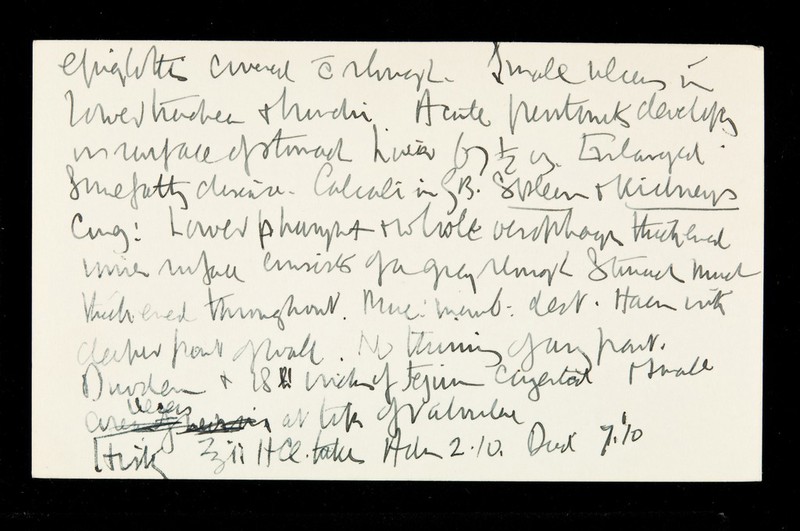 epiglottis covered c̄ slough. Small ulcers in
lower trachea & bronchi. Acute peritonitis developing
on surface of stomach Liver 69 ½ oz. Enlarged
Some fatty disease. Calculi in G.B. Spleen & Kidneys
Cong: Lower pharynx & whole oesophagus thickened
inner surface consists of a grey slough Stomach much
thickened throughout. Muc: memb: dest. Haem into
deeper part of wall. No thinning of any part.
Duoden & 18" inches of Jejunum congested & small
ulcers at tips of valvulae
Hist ʒii HCl. taken Adm 2.10. Died 7.10